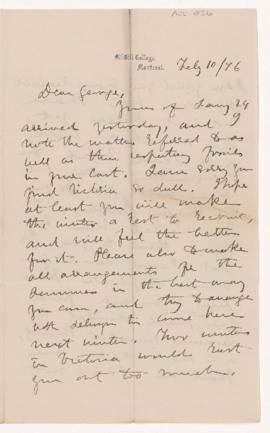 Acc. 926
McGill College,
Montreal.
Feby 10/76
Dear George,
Yours of Jany 24
arrived yesterday, and I
note the matters referred to as
well as those respecting fossils
in your last. I am sorry you
find Victoria so dull. I hope
at least you will make
the winter a rest to recruit,
and will feel the better
for it. Please also to make
all arrangements for the
summer in the best way
you can, and try to arrange
with Selwyn to come here
next winter. Two winters
in Victoria would rust
you out too much.